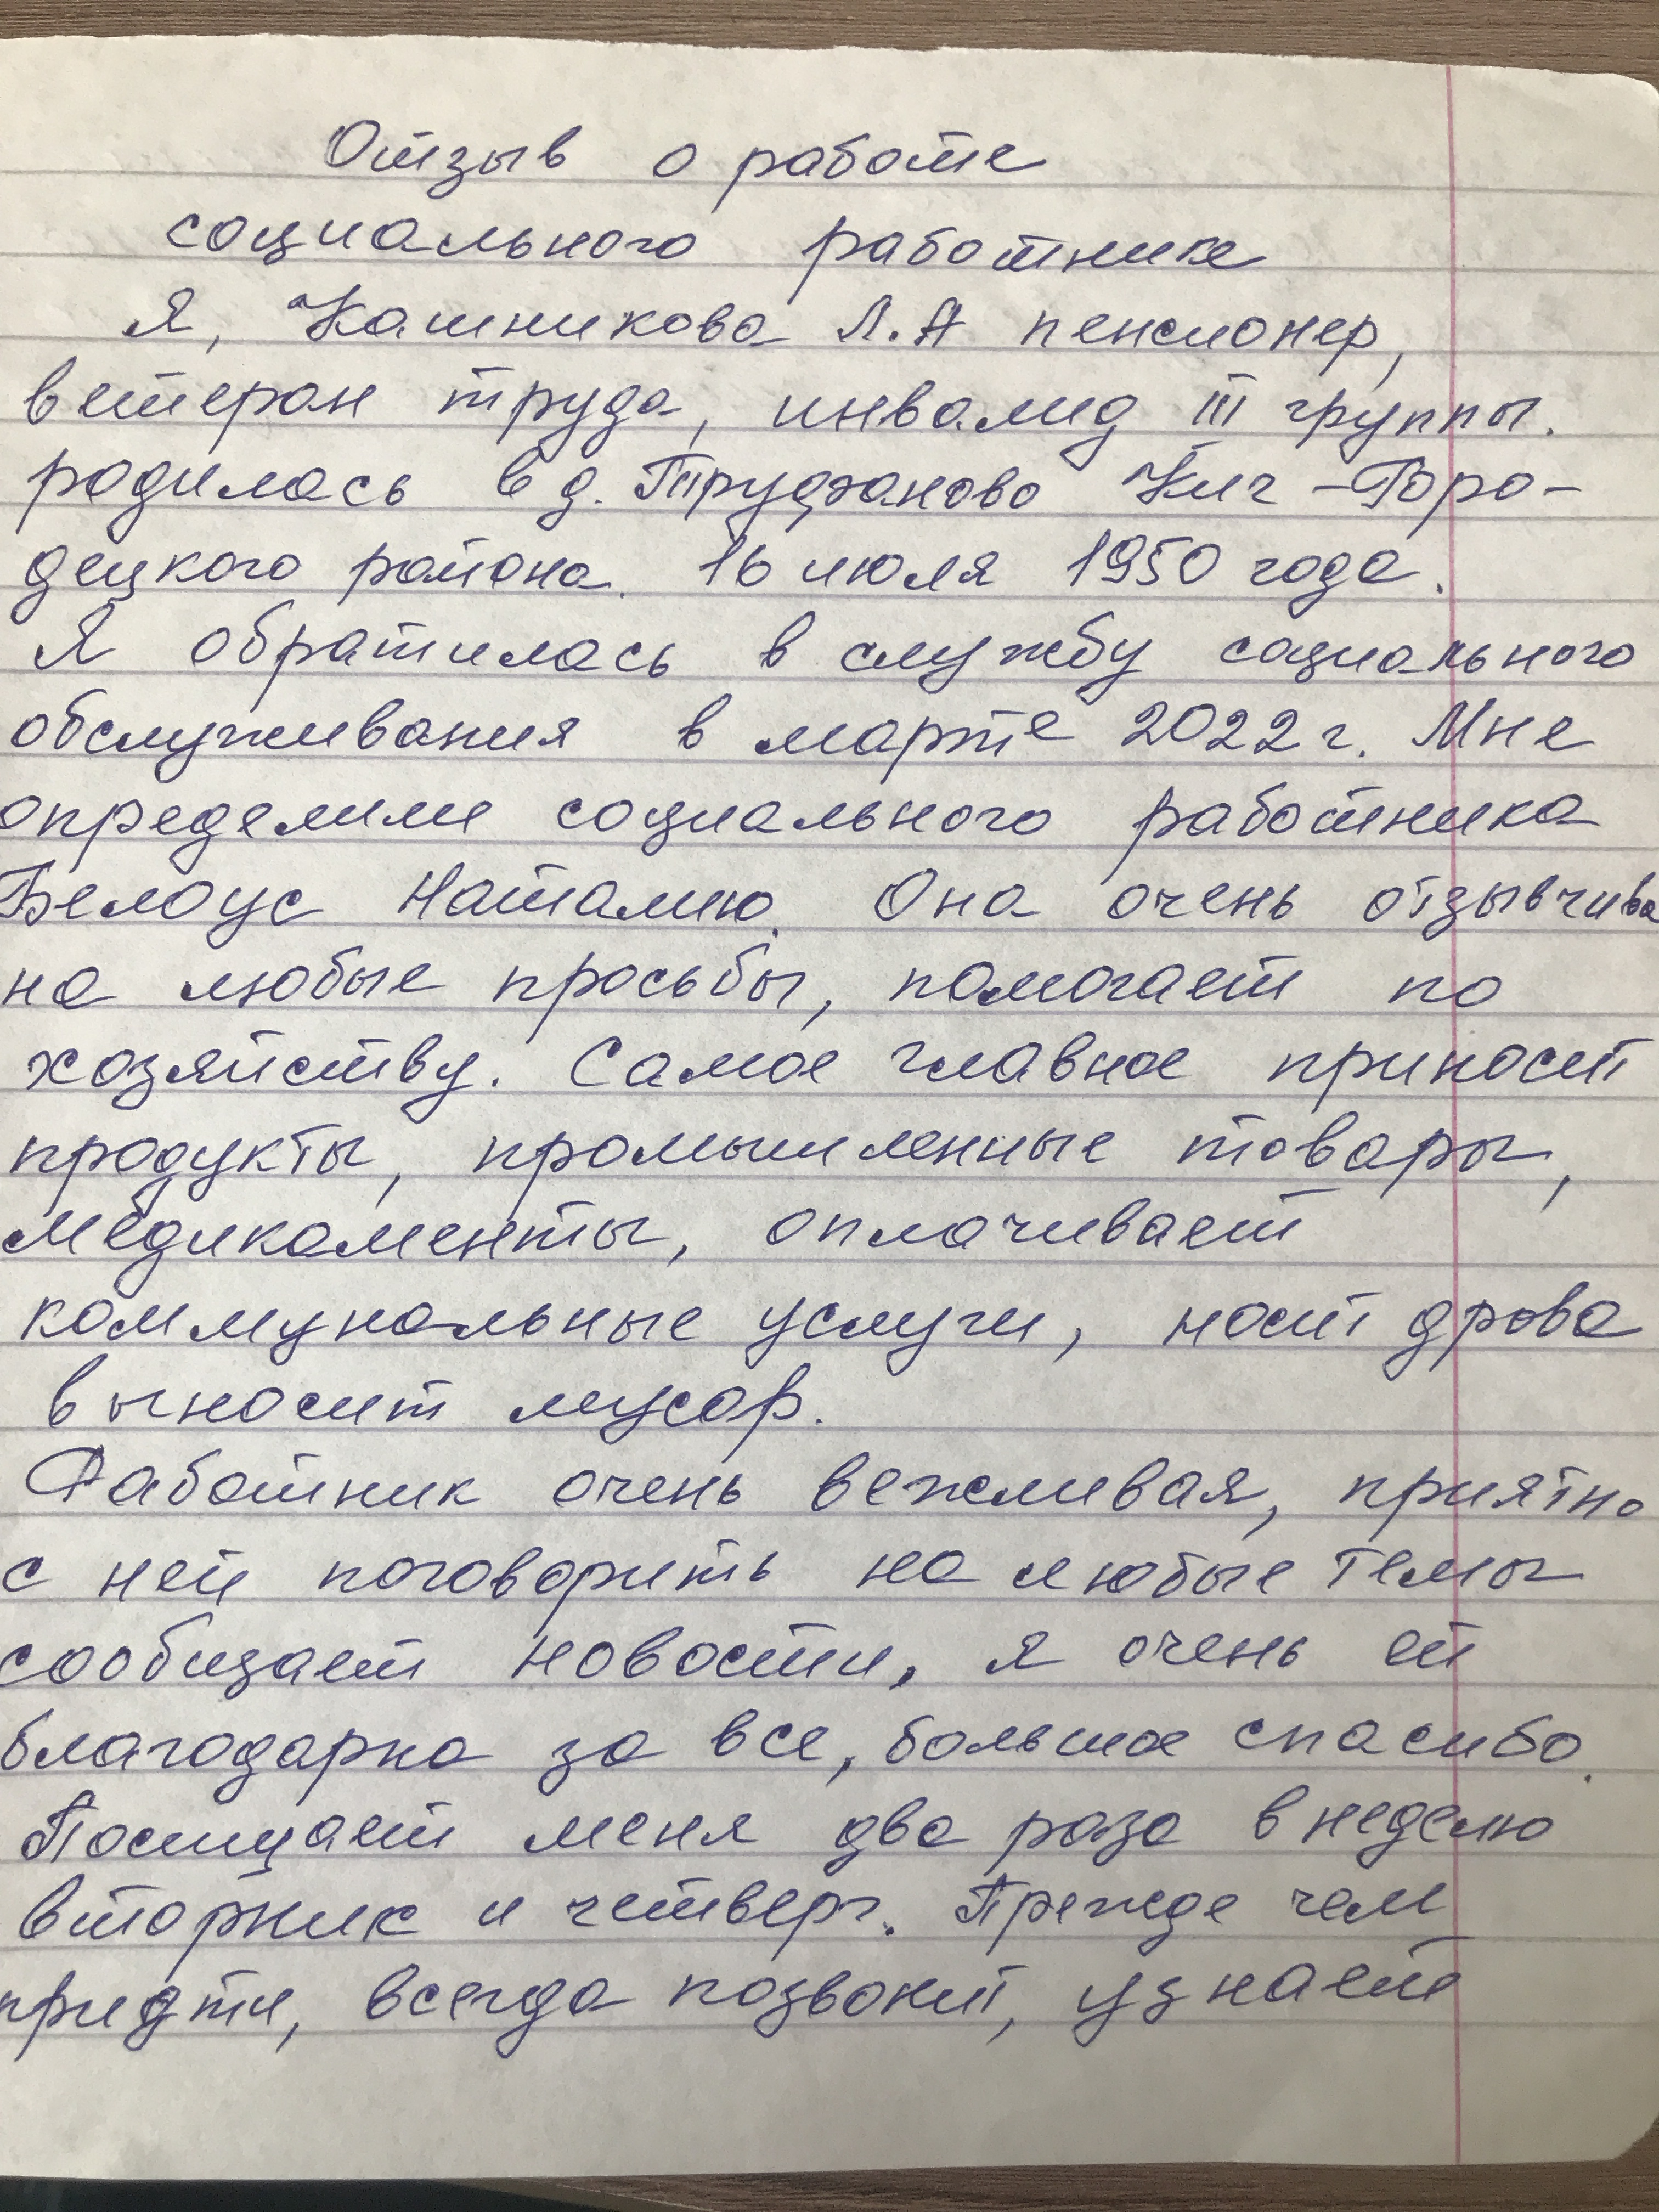 Отзыв о работе
социального работника
Я, Кашникова Л.А пенсионер,
ветеран труда, инвалид III группы.
родилась в д. Труфаново Кич-Горо-
децкого района. 16 июля 1950 года.
Я обратилась в службу социального
обслуживания в марте 2022 г. Мне
определили социального работника
Белоус Наталию. Она очень отзывчива
на любые просьбы, помогает по
хозяйству. Самое главное приносит
продукты, промышленные товары,
медикаменты, оплачивает
коммунальные услуги, носит дрова
выносит мусор.
Работник очень вежливая, приятно
с ней поговорить на любые темы
сообщает новости, я очень ей
благодарна за все, большое спасибо.
Посищает меня два раза в неделю
вторник и четверг. Прежде чем
придти, всегда позвонит, узнает